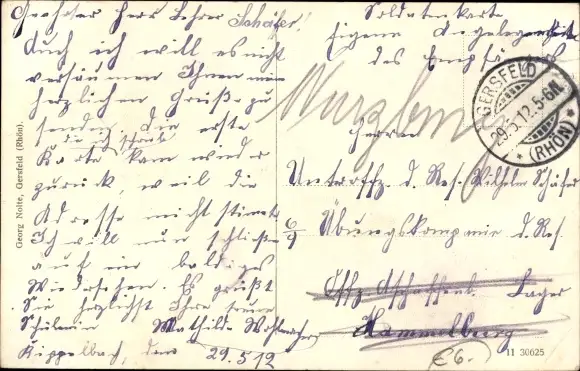 Geehrter Herr Lehrer Schäfer!
Auch ich will es nicht
versäumen Ihnen
herzlichen Grüße zu
senden, die erste
Karte kam wieder
zurück, weil die
Adresse nicht stimmte
Ich will nun schließen
auf ein baldiges
Wiedersehen. Es grüßt
Sie herzlichst Ihre treue
Schülerin Mathilde
den 29.5.12
Georg Nolte, Gersfeld (Rhön).
Soldatenkarte
Eigene Angelegenheit
des Empfängers
GERSFELD
29.5.12.5-6N.
* (RHÖN) *
Würzburg
Herrn
Unteroffz. d. Res. Wilhelm Schäfer
6/9 Übungskompanie d. Res.
Lager
Hammelburg
11 30625